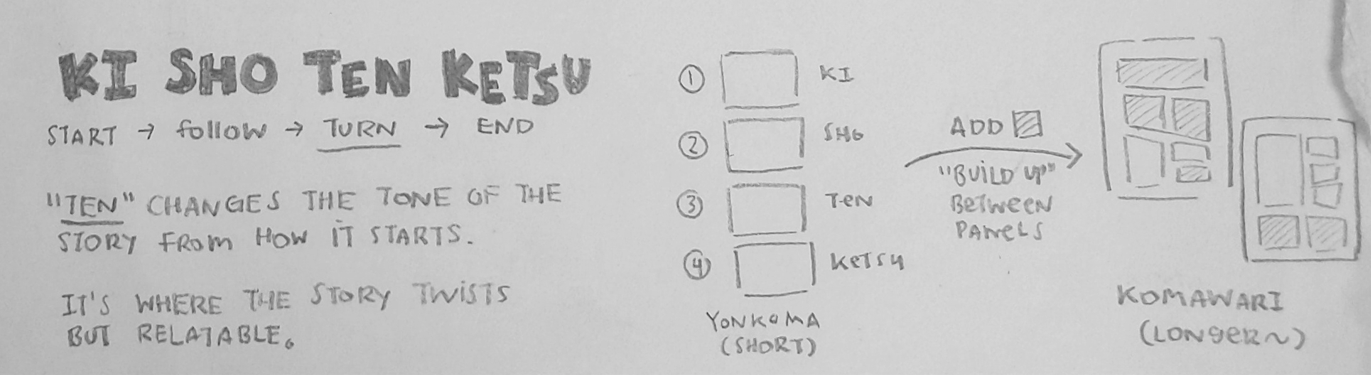 KI SHO TEN KETSU
START → follow → TURN → END
"TEN" CHANGES THE TONE OF THE
STORY FROM HOW IT STARTS.
IT'S WHERE THE STORY TWISTS
BUT RELATABLE.
① KI
② SHO
③ TEN
④ KETSU
YONKOMA
(SHORT)
ADD
"BUILD UP"
BETWEEN
PANELS
KOMAWARI
(LONGER~)